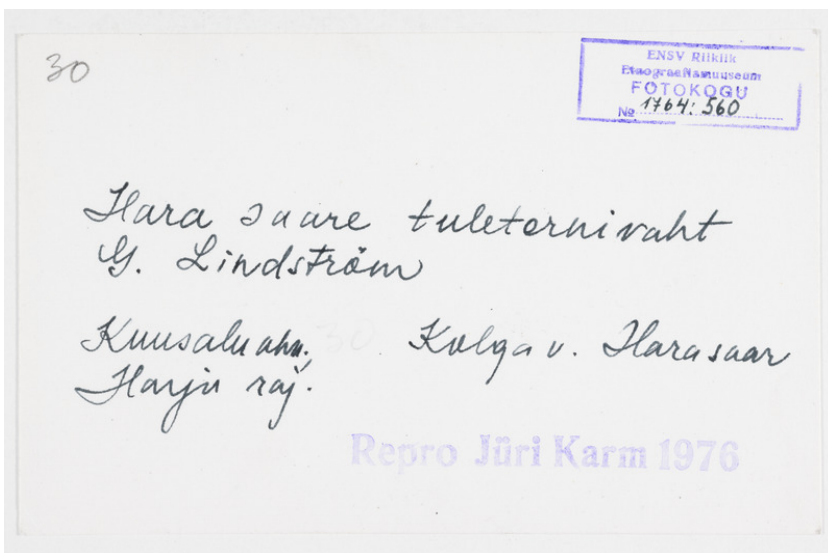 30
ENSV Riiklik
Etnograafiamuuseum
FOTOKOGU
№ 1764:560
Hara saare tuletornivaht
G. Lindström
Kuusalu khk. Kolga v. Hara saar
Harju raj.
Repro Jüri Karm 1976